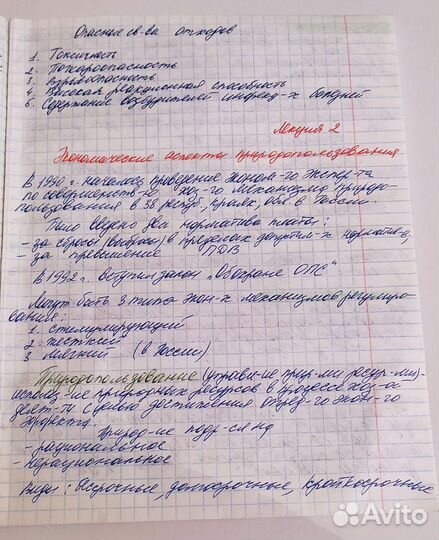 Опасные св-ва отходов
1. Токсичность
2. Пожароопасность
3. Взрывоопасность
4. Высокая реакционная способность
5. Содержание возбудителей инфекц-х болезней
Лекция 2
Экономические аспекты природопользования
В 1990 г. началось проведение эконом-го экспер-та
по совершенств-ю хоз-го механизма природо-
пользования в 38 респуб, краях, обл. в России
Было введено два норматива платы:
- за сбросы (выбросы) в пределах допустим-х норматив-в,
- за превышение ПДВ
В 1992 г. вступил закон „Об охране ОПС"
Могут быть 3 типа экон-х механизмов регулиро-
вание:
1. стимулирующий
2. жесткий
3 мягкий (в России)
Природопользование (управл-ие прир-ми ресур-ми)-
использ-ие природных ресурсов в процессе хоз-ой
деят-ти с целью достижения опред-го экон-го
эффекта.
Природ-ие подр-ся на
- рациональное
- нерациональное
Виды: бессрочные, долгосрочные, краткосрочные
Avito